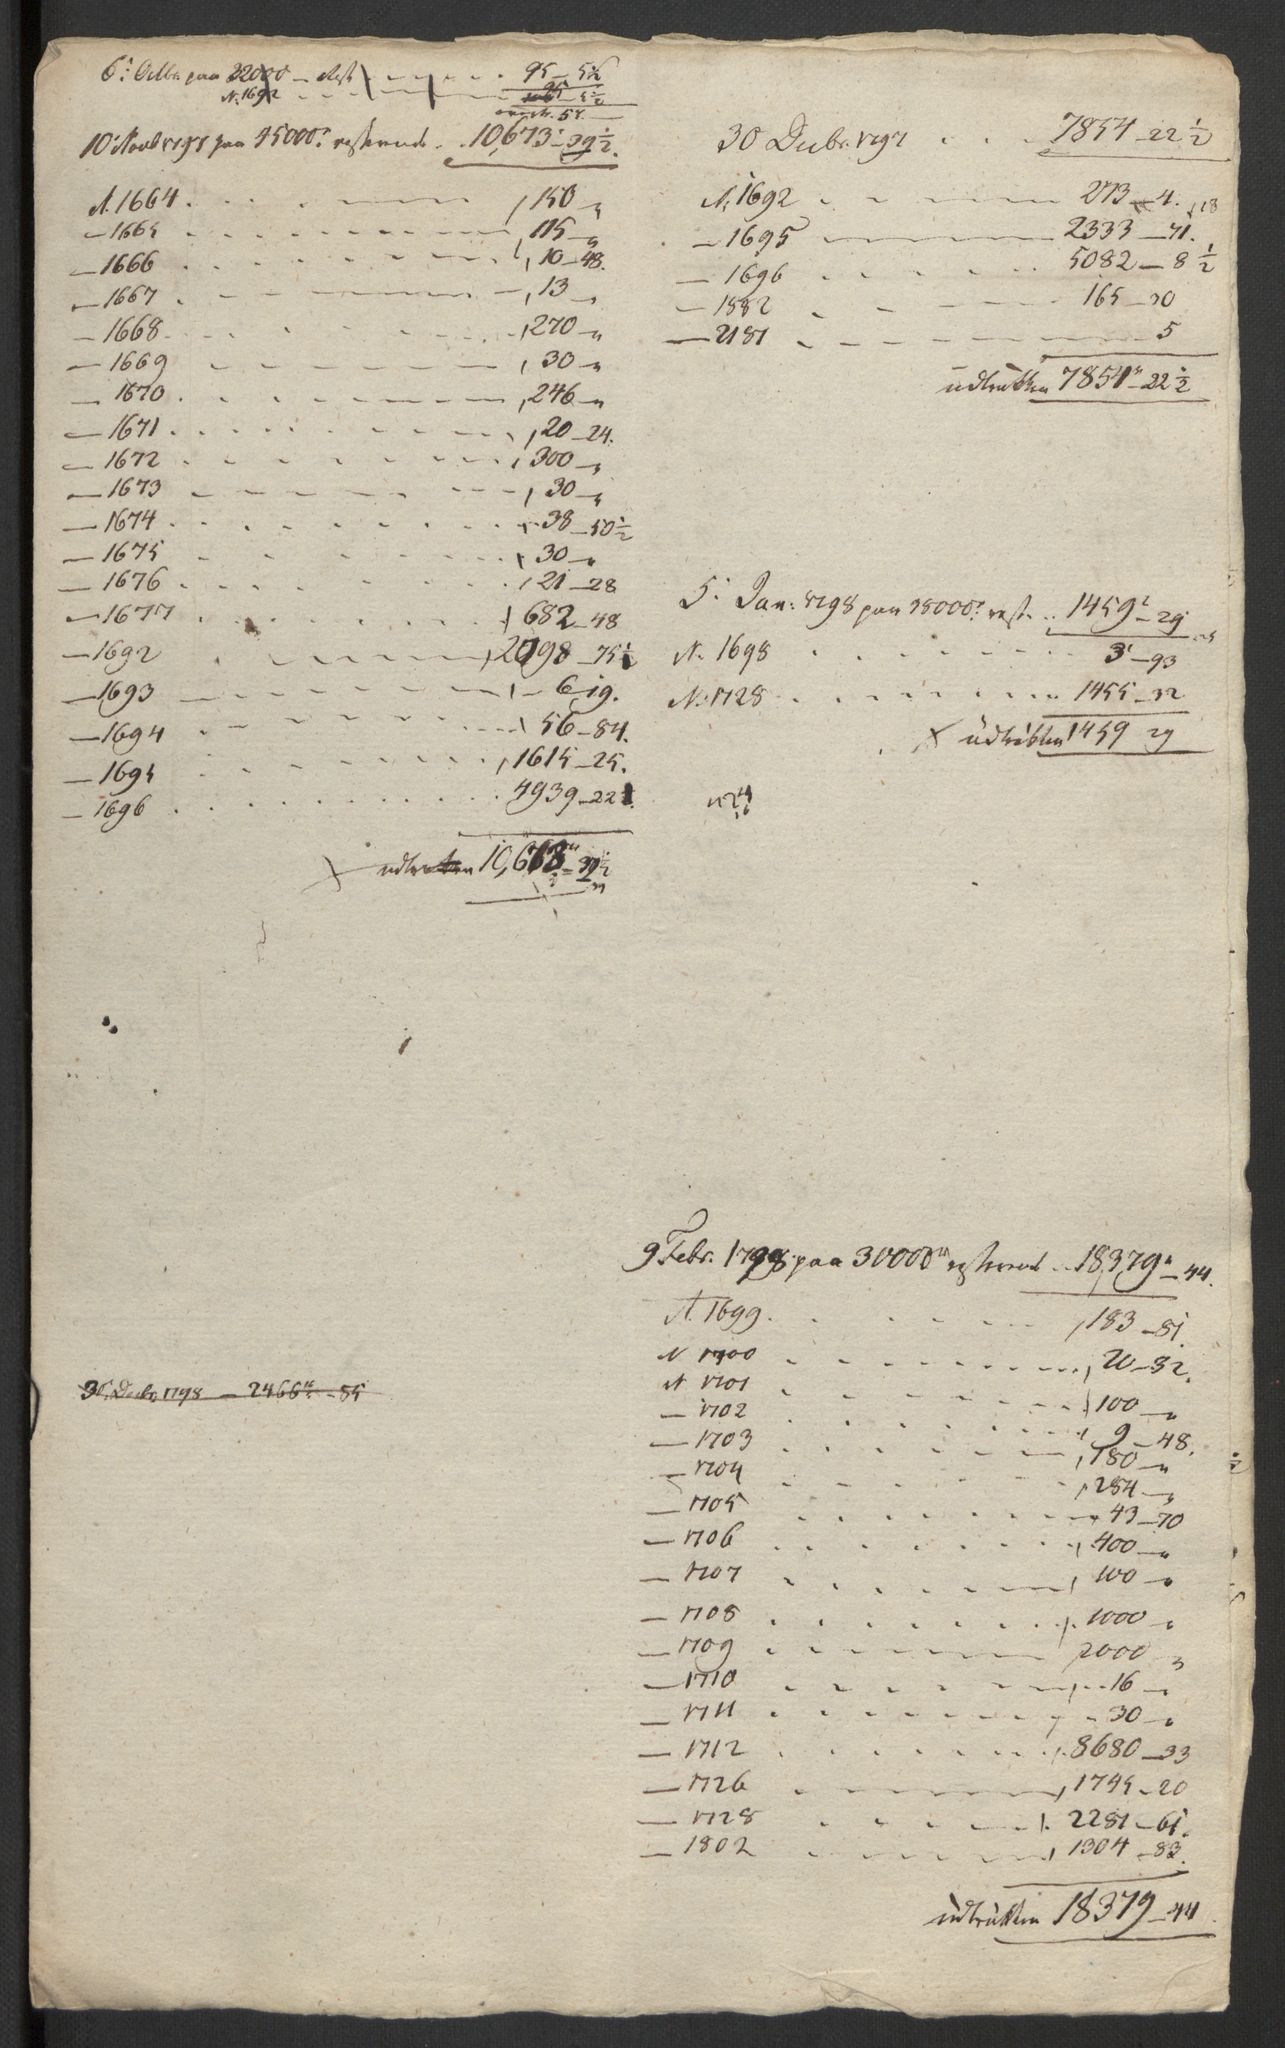 6: Octbr paa 22000 – Rest 95 – 5½
N. 1692
54
10 Novbr 1797 paa 45000 resterende 10,673 – 39½
N. 1664 150 – „
– 1665 115 – „
– 1666 10 – 48.
– 1667 13 – „
– 1668 270 – „
– 1669 30 – „
– 1670 246 – „
– 1671 20 – 24.
– 1672 300 – „
– 1673 30 – „
– 1674 38 – 50½
– 1675 30 – „
– 1676 21 – 28
– 1677 682 – 48
– 1692 2098 – 75½
– 1693 6 – 19.
– 1694 56 – 84.
– 1695 1615 – 25.
– 1696 4939 – 22
udtrukken 10,673 – 39½
30 Decbr 1798 – 2466 – 85
30 Decbr. 1797 7854 – 22½
N. 1692 273 – 4. 18
– 1695 2333 – 71.
– 1696 5082 – 8½
– 1882 165 – 30
– 2181 5
udtrukken 7854 – 22½
5: Jan: 1798 paa 35000 rest. 1459 – 29
N. 1698 3 – 93
N. 1728 1455 – 32
udtrukken 1459 29
9 Febr. 1798 paa 30000 resterende 18,379 – 44.
N. 1699 183 – 81.
N 1700 20 – 32.
N 1701 100 – „
– 1702 9 – 48.
– 1703 180 – „
– 1704 284 – „
– 1705 43 – 70
– 1706 400 – „
– 1707 100 – „
– 1708 1000 „
– 1709 2000 „
– 1710 16 – „
– 1711 30 – „
– 1712 8680 – 33
– 1726 1745 – 20
– 1728 2281 – 61.
– 1802 1304 – 83.
udtrukken 18379 – 44